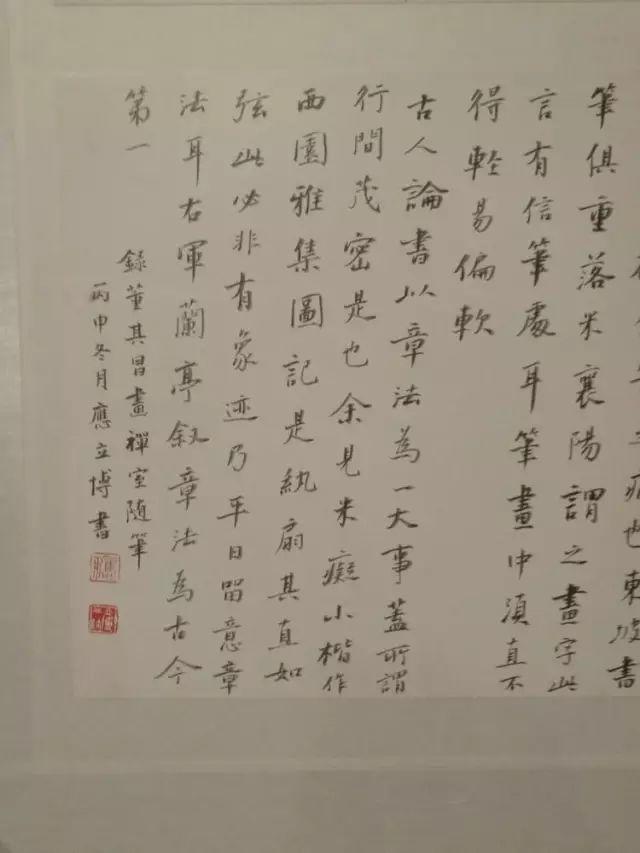 病也東坡書
筆俱重落米襄陽謂之畫字此
言有信筆處耳筆畫中須直不
得輕易偏軟
古人論書以章法為一大事蓋所謂
行間茂密是也余見米癡小楷作
西園雅集圖記是紈扇其直如
弦此必非有象迹乃平日留意章
法耳右軍蘭亭叙章法為古今
第一
錄董其昌畫禪室隨筆
丙申冬月應立博書